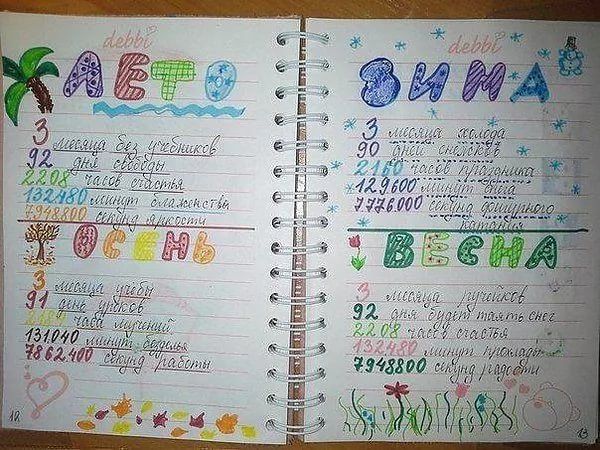 debbi
ЛЕТО
3 месяца без учебников
92 дня свободы
2208 часов счастья
132480 минут блаженства
7948800 секунд яркости
ОСЕНЬ
3 месяца учебы
91 день уроков
часа мучений
131.040 минут безделья
7862.400 секунд работы
12
debbi
ЗИМА
3 месяца холода
90 дней снежков
2160 часов праздника
129600 минут снега
7776.000 секунд
катания
ВЕСНА
3 месяца ручейков
92 дня будет таять снег
2208 часов счастья
132480 минут прохлады
7948800 секунд радости
13